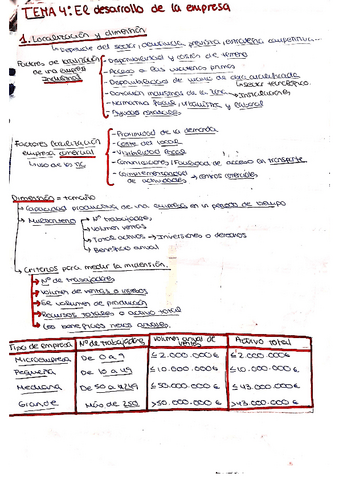 TEMA 4: El desarrollo de la empresa
1. Localización y dimensión
Depende del sector, competitiva...
Factores de localización de una empresa industrial
- Disponibilidad y coste del terreno
- Acceso a las materias primas
- Disponibilidad de mano de obra cualificada
- Normativa fiscal, urbanística y laboral
- Ayudas
Factores localización empresa comercial
- Proximidad de la demanda
- Coste del local
- Visibilidad local
- Comunicaciones / Facilidad de acceso en transporte
- Complementariedad de actividades → centros comerciales
Dimensión = tamaño
Capacidad productiva de una empresa en un periodo de tiempo
Nº trabajadores
Volumen ventas
Total activos → Inversiones o derechos
Beneficio anual
Criterios para medir la dimensión
Nº de trabajadores
Volumen de ventas o ingresos
El volumen de producción
Recursos totales o activo total
Los beneficios netos anuales
Tipo de empresa | Nº de trabajadores | Volumen anual de ventas | Activo total
Microempresa | De 0 a 9 | ≤ 2.000.000 € | ≤ 2.000.000 €
Pequeña | De 10 a 49 | ≤ 10.000.000 € | ≤ 10.000.000 €
Mediana | De 50 a 249 | ≤ 50.000.000 € | ≤ 43.000.000 €
Grande | Más de 250 | > 50.000.000 € | > 43.000.000 €